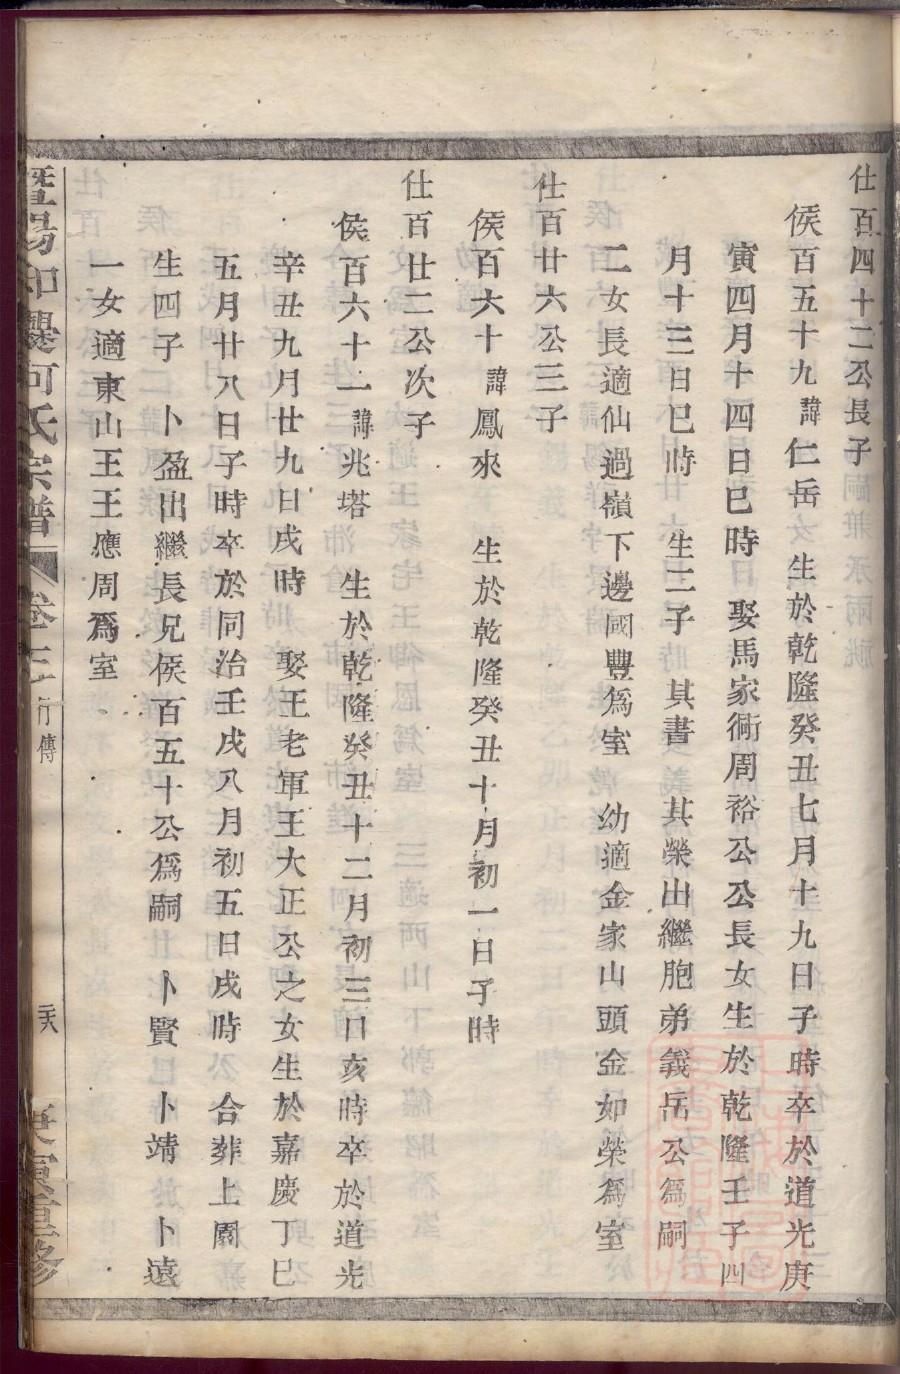 仕百四十二公長子
侯百五十九諱仁岳　生於乾隆癸丑七月十九日子時卒於道光庚
寅四月十四日巳時　娶馬家衕周裕公公長女生於乾隆壬子四
月十三日巳時　生二子　其書　其榮出繼胞弟義岳公爲嗣
二女長適仙過嶺下邊國豐爲室　幼適金家山頭金如榮爲室
仕百廿六公三子
侯百六十諱鳳來　生於乾隆癸丑十月初一日子時
仕百廿二公次子
侯百六十一諱兆塔　生於乾隆癸丑十二月初三日亥時卒於道光
辛丑九月廿九日戌時　娶王老軍王大正公之女生於嘉慶丁巳
五月廿八日子時卒於同治壬戌八月初五日戌時　合葬上園
生四子　卜盈出繼長兄侯百五十公爲嗣　卜賢　卜靖　卜遠
一女適東山王王應周爲室
暨陽和㸑何氏宗譜　卷三　行傳　庚寅重修